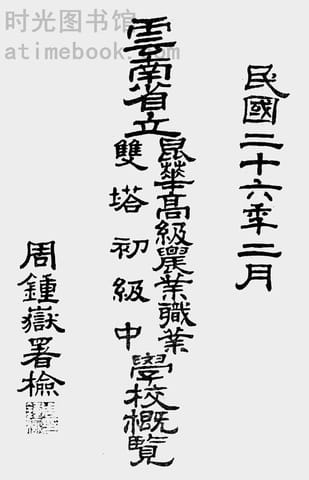 时光图书馆
atimebook.com
民國二十六年二月
雲南省立
昆華高級農業職業
雙塔初級中
學校概覽
周鍾嶽署檢